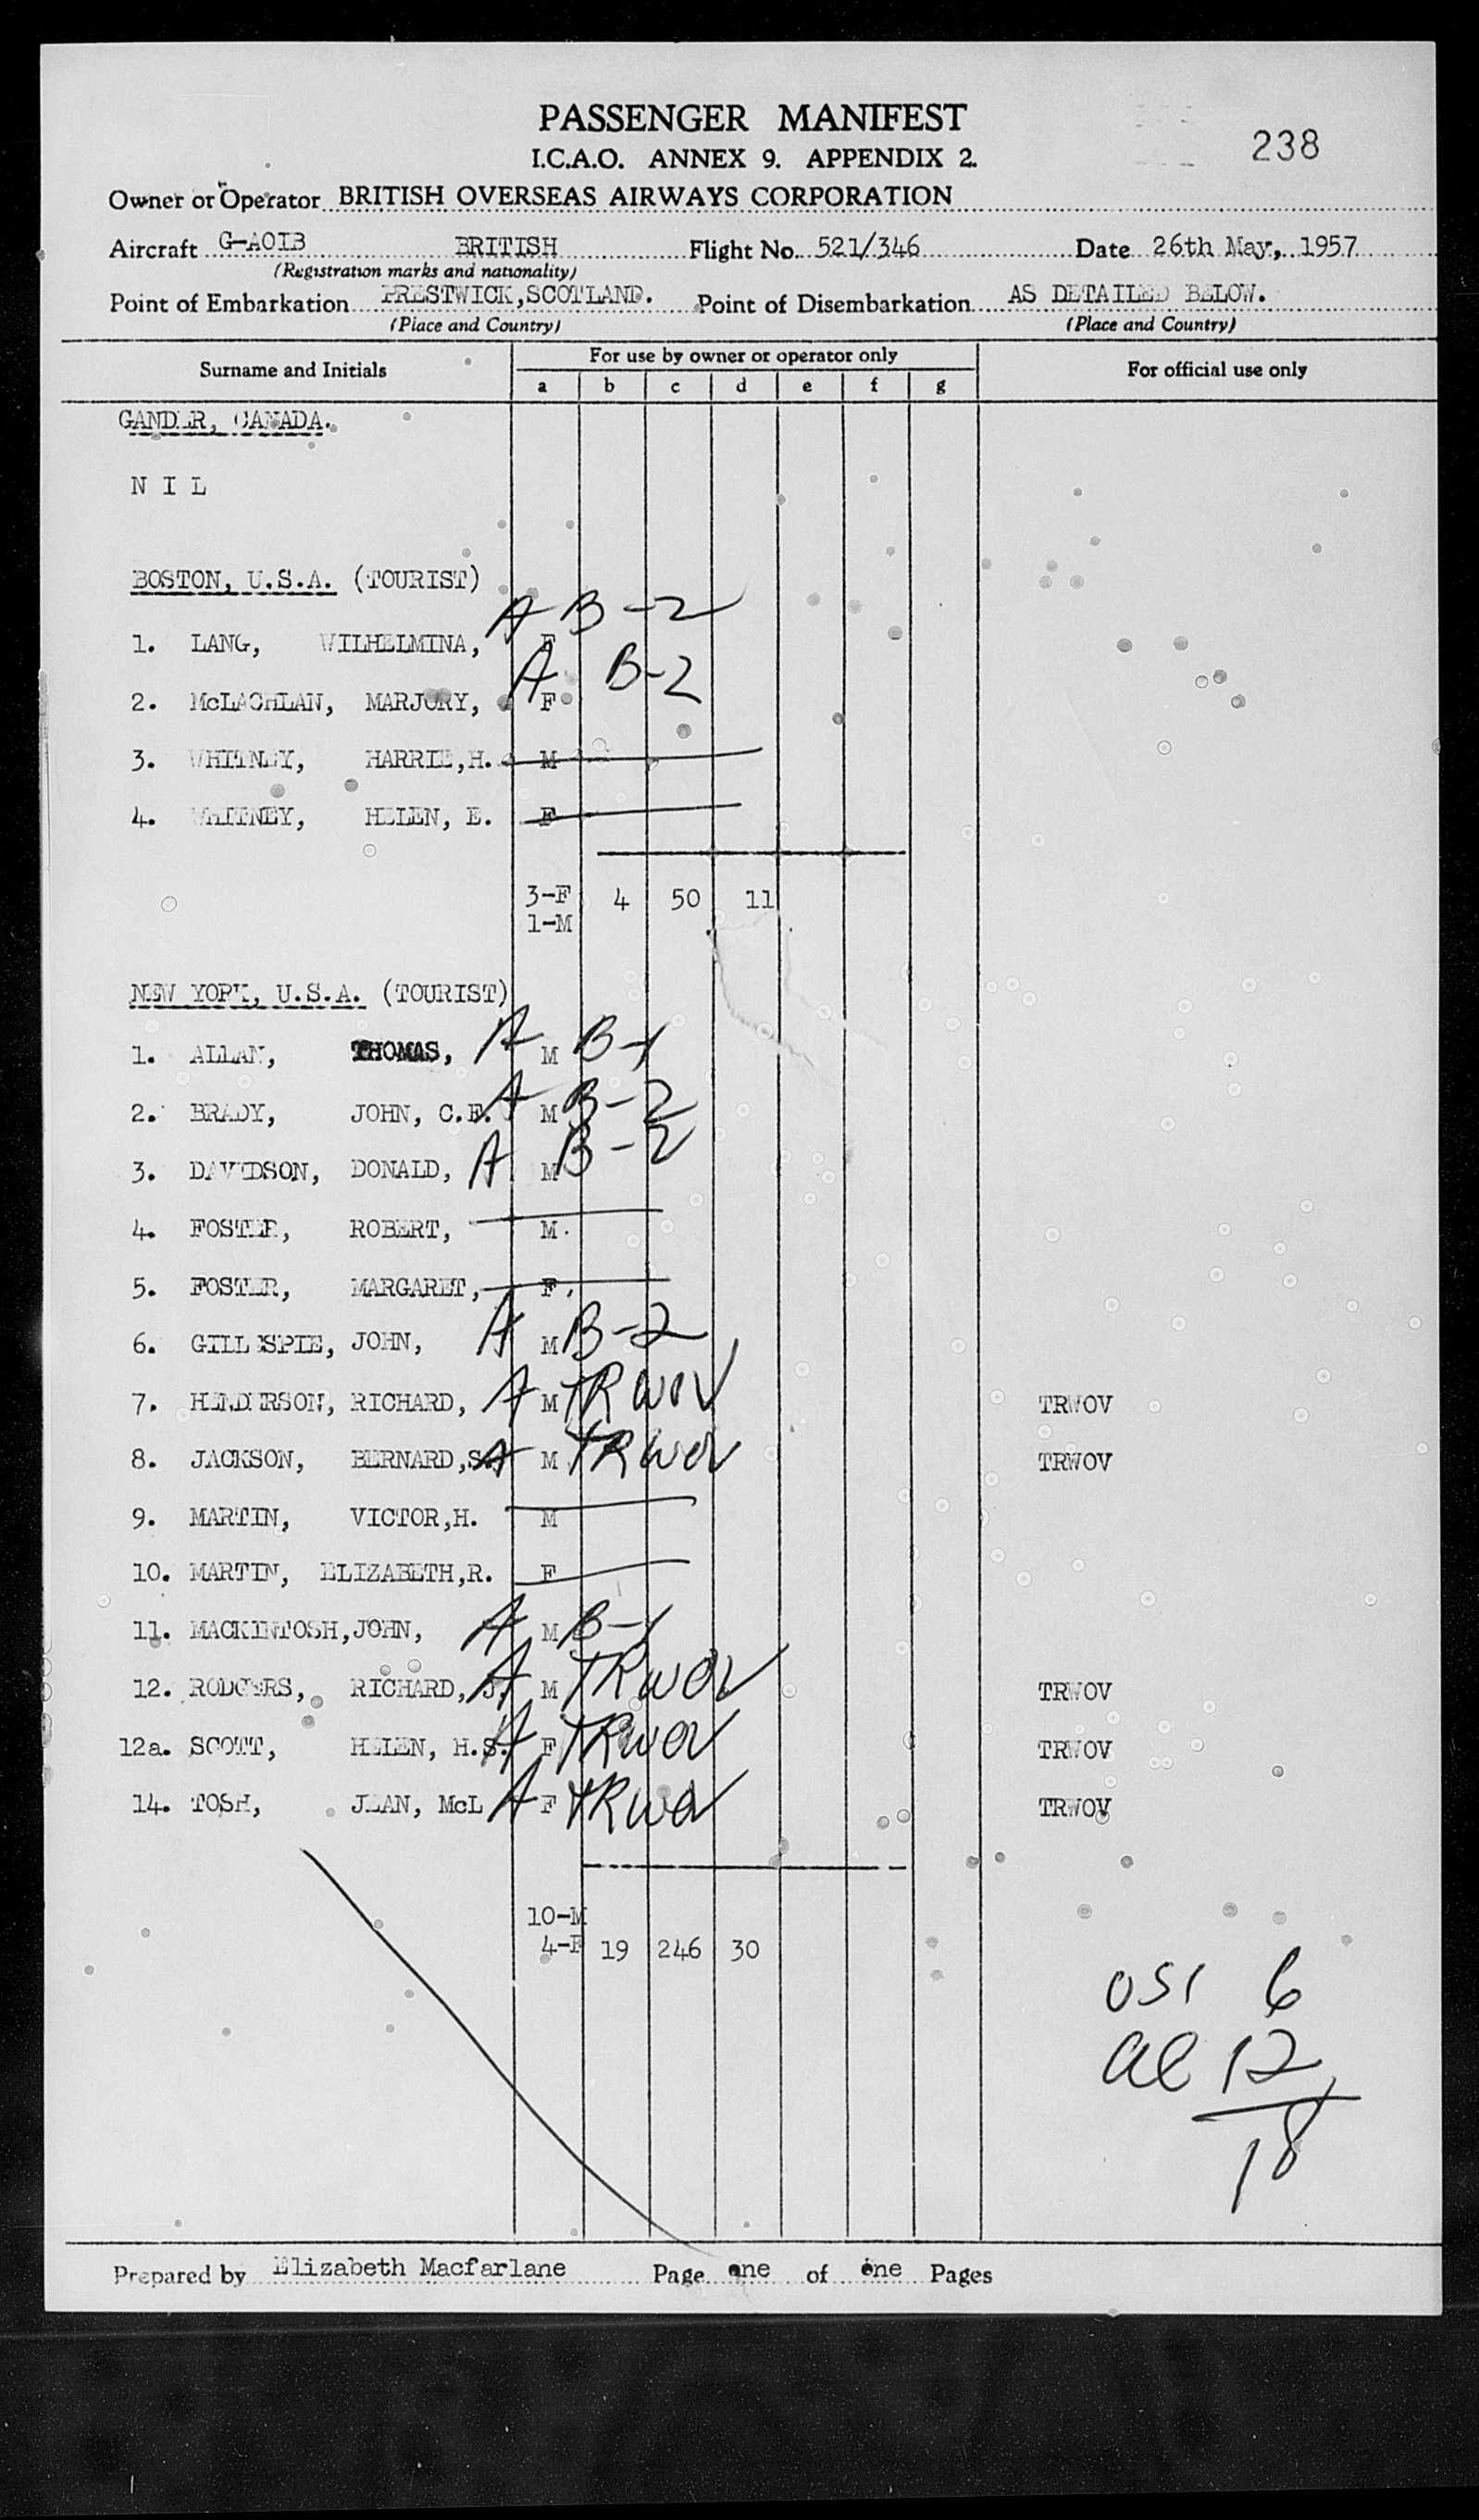 PASSENGER MANIFEST
238
I.C.A.O. ANNEX 9. APPENDIX 2.
Owner or Operator BRITISH OVERSEAS AIRWAYS CORPORATION
Aircraft G-AOIB BRITISH Flight No. 521/346 Date 26th May, 1957
(Registration marks and nationality)
Point of Embarkation PRESTWICK, SCOTLAND. Point of Disembarkation AS DETAILED BELOW.
(Place and Country) (Place and Country)
Surname and Initials For use by owner or operator only For official use only
a b c d e f g
GANDER, CANADA.
N I L
BOSTON, U.S.A. (TOURIST)
1. LANG, WILHELMINA, F A B-2
2. McLACHLAN, MARJORY, F A B-2
3. WHITNEY, HARRIE,H. M
4. WHITNEY, HELEN, E. F
3-F 4 50 11
1-M
NEW YORK, U.S.A. (TOURIST)
1. ALLAN, THOMAS, A M B-1
2. BRADY, JOHN, C.E. A M B-2
3. DAVIDSON, DONALD, A M B-2
4. FOSTER, ROBERT, M.
5. FOSTER, MARGARET, F.
6. GILLESPIE, JOHN, A M B-2
7. HENDERSON, RICHARD, A M TRWOV TRWOV
8. JACKSON, BERNARD,S. A M TRWOV TRWOV
9. MARTIN, VICTOR,H. M
10. MARTIN, ELIZABETH,R. F
11. MACKINTOSH,JOHN, A M B-1
12. RODGERS, RICHARD, J. A M TRWOV TRWOV
12a. SCOTT, HELEN, H.S. A F TRWOV TRWOV
14. TOSH, JEAN, McL A F TRWOV TRWOV
10-M
4-F 19 246 30
OSI 6
al 12
18
Prepared by Elizabeth Macfarlane Page one of one Pages